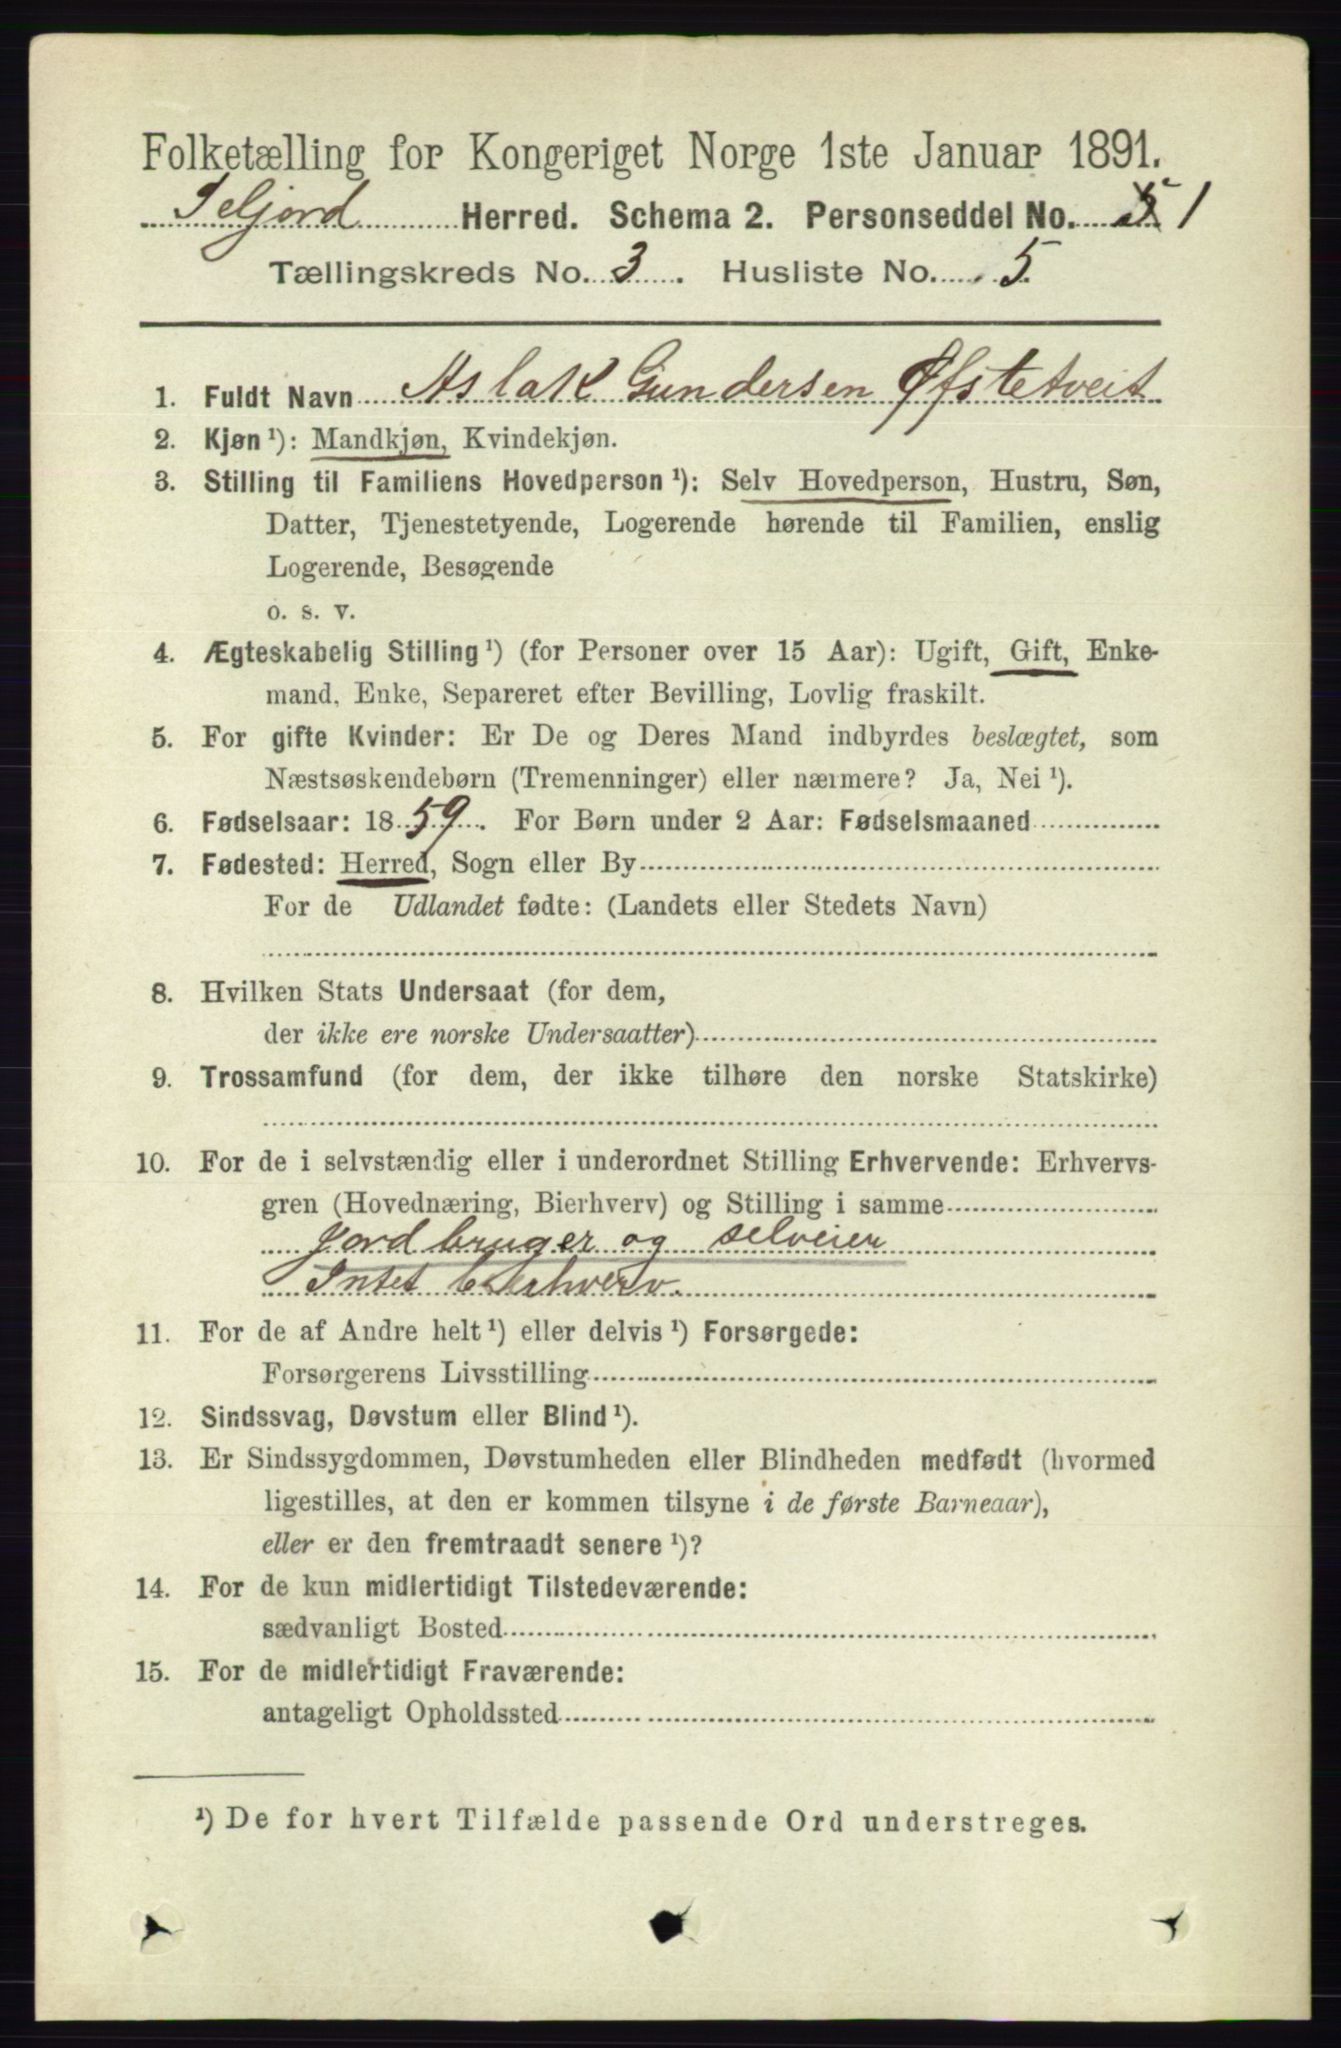 Folketælling for Kongeriget Norge 1ste Januar 1891.
Seljord Herred. Schema 2. Personseddel No. 1
Tællingskreds No. 3. Husliste No. 5.
1. Fuldt Navn Aslak Gundersen Øfstetveit
2. Kjøn¹): Mandkjøn, Kvindekjøn.
3. Stilling til Familiens Hovedperson¹): Selv Hovedperson, Hustru, Søn,
Datter, Tjenestetyende, Logerende hørende til Familien, enslig
Logerende, Besøgende
o. s. v.
4. Ægteskabelig Stilling¹) (for Personer over 15 Aar): Ugift, Gift, Enke-
mand, Enke, Separeret efter Bevilling, Lovlig fraskilt.
5. For gifte Kvinder: Er De og Deres Mand indbyrdes beslægtet, som
Næstsøskendebørn (Tremenninger) eller nærmere? Ja, Nei¹).
6. Fødselsaar: 1859. For Børn under 2 Aar: Fødselsmaaned
7. Fødested: Herred, Sogn eller By
For de Udlandet fødte: (Landets eller Stedets Navn)
8. Hvilken Stats Undersaat (for dem,
der ikke ere norske Undersaatter)
9. Trossamfund (for dem, der ikke tilhøre den norske Statskirke)
10. For de i selvstændig eller i underordnet Stilling Erhvervende: Erhvervs-
gren (Hovednæring, Bierhverv) og Stilling i samme
Jordbruger og selveier
Intet Bierhverv.
11. For de af Andre helt¹) eller delvis¹) Forsørgede:
Forsørgerens Livsstilling
12. Sindssvag, Døvstum eller Blind¹).
13. Er Sindssygdommen, Døvstumheden eller Blindheden medfødt (hvormed
ligestilles, at den er kommen tilsyne i de første Barneaar),
eller er den fremtraadt senere¹)?
14. For de kun midlertidigt Tilstedeværende:
sædvanligt Bosted
15. For de midlertidigt Fraværende:
antageligt Opholdssted
¹) De for hvert Tilfælde passende Ord understreges.